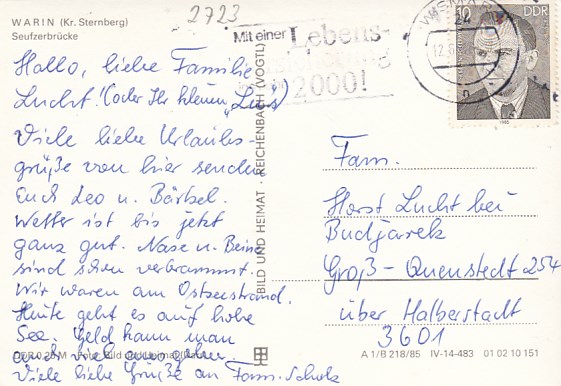 WARIN (Kr. Sternberg)
Seufzerbrücke
2723
Mit einer Lebens-
versicherung
2000!
WISMAR
12.
DDR
10
1982
Hallo, liebe Familie
Lucht! (oder Ihr kleinen „Lus“)
Viele liebe Urlaubs-
grüße von hier senden
Euch Leo u. Bärbel.
Wetter ist bis jetzt
ganz gut. Nase u. Beine
sind schon verbrannt.
Wir waren am Ostseestrand.
Heute geht es auf hohe
See. Geld kann man
auch viel
Viele liebe Grüße an Fam. Scholz
DDR 0,20 M Foto: Bild und Heimat
BILD UND HEIMAT · REICHENBACH (VOGTL)
Fam.
Horst Lucht bei
Budjarek
Groß-Quenstedt 254
über Halberstadt
3601
A 1/B 218/85 IV-14-483 01 02 10 151